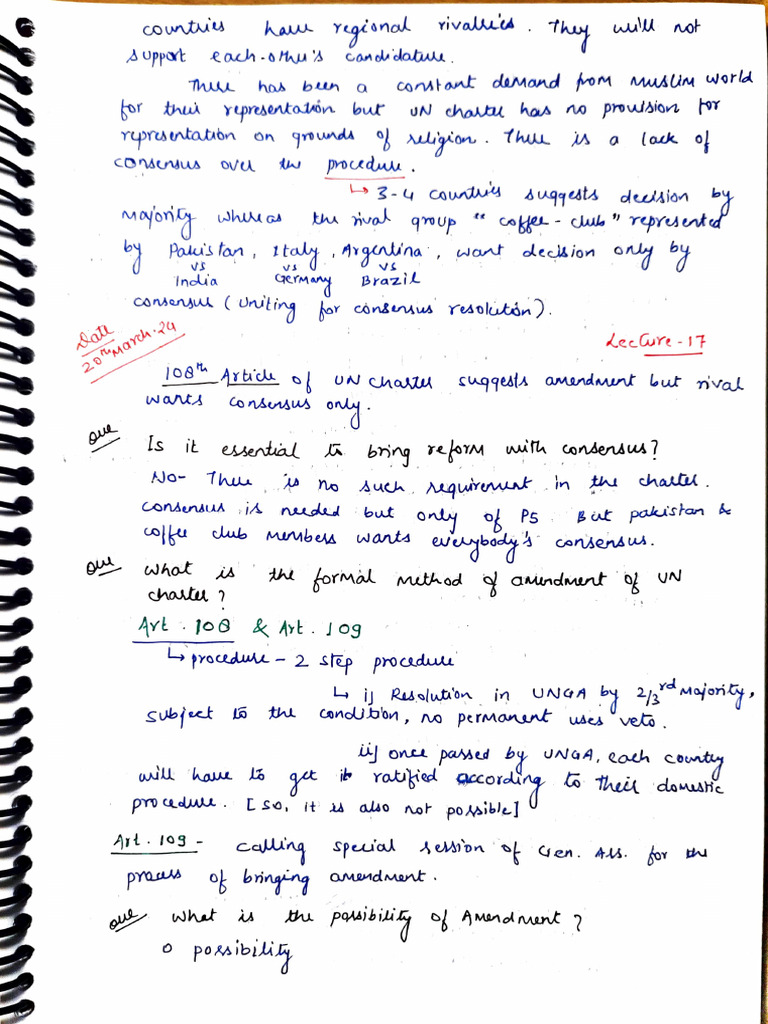 countries have regional rivalries. They will not
support each-other's candidature.
There has been a constant demand from Muslim world
for their representation but UN charter has no provision for
representation on grounds of religion. There is a lack of
consensus over the procedure.
↳ 3-4 countries suggests decision by
majority whereas the rival group "coffee-club" represented
by Pakistan, Italy, Argentina, want decision only by
vs vs vs
India Germany Brazil
consensus (Uniting for consensus resolution).
Date
20th March-24
Lecture-17
108th Article of UN charter suggests amendment but rival
wants consensus only.
Que Is it essential to bring reform with consensus?
No- There is no such requirement in the charter.
consensus is needed but only of P5. But pakistan &
coffee club members wants everybody's consensus.
Que What is the formal method of amendment of UN
charter?
Art. 108 & Art. 109
↳ procedure - 2 step procedure
↳ i] Resolution in UNGA by 2/3rd Majority,
subject to the condition, no permanent uses veto.
ii] once passed by UNGA, each country
will have to get it ratified according to their domestic
procedure. [so, it is also not possible]
Art. 109 - calling special session of Gen. Ass. for the
process of bringing amendment.
Que What is the possibility of Amendment?
0 possibility